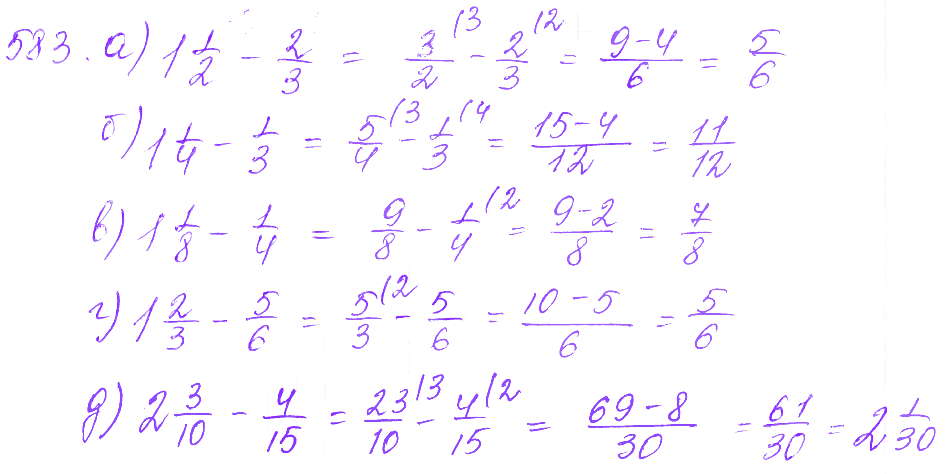 583. а) 1 1/2 - 2/3 = 3/2 (3 - 2/3 (2 = 9-4/6 = 5/6
б) 1 1/4 - 1/3 = 5/4 (3 - 1/3 (4 = 15-4/12 = 11/12
в) 1 1/8 - 1/4 = 9/8 - 1/4 (2 = 9-2/8 = 7/8
г) 1 2/3 - 5/6 = 5/3 (2 - 5/6 = 10-5/6 = 5/6
д) 2 3/10 - 4/15 = 23/10 (3 - 4/15 (2 = 69-8/30 = 61/30 = 2 1/30